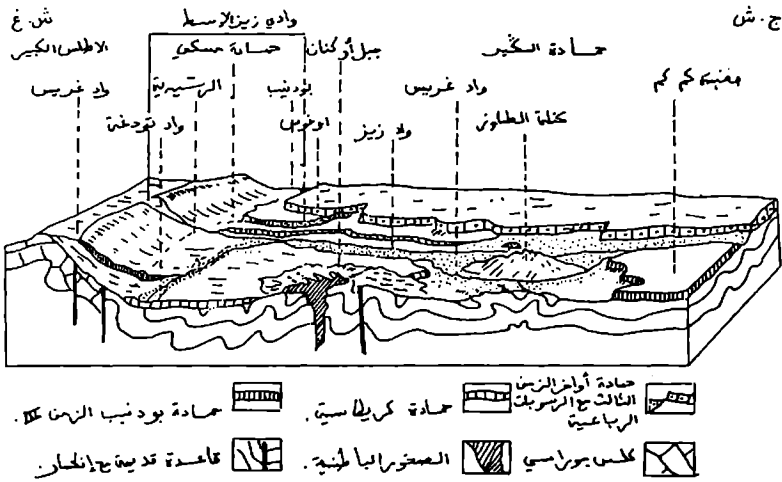 ش.غ
ج.ش
وادي زيز الاوسط
الاطلس الكبير
حمادة مسكي
جبل أوكنات
حمادة الكير
واد غريس
الرشيدية
بودنيب
واد غريس
هضبة كم كم
واد تودغة
اوفوس
واد زيز
كتلة الطاوز
حمادة أواخر الزمن
الثالث مع الرسوبات
الرباعية
حمادة كريطاسية.
حمادة بودنيب الزمن III.
كلس جوراسي
الصخور الباطنية.
قاعدة قديمة مع إنكسار.